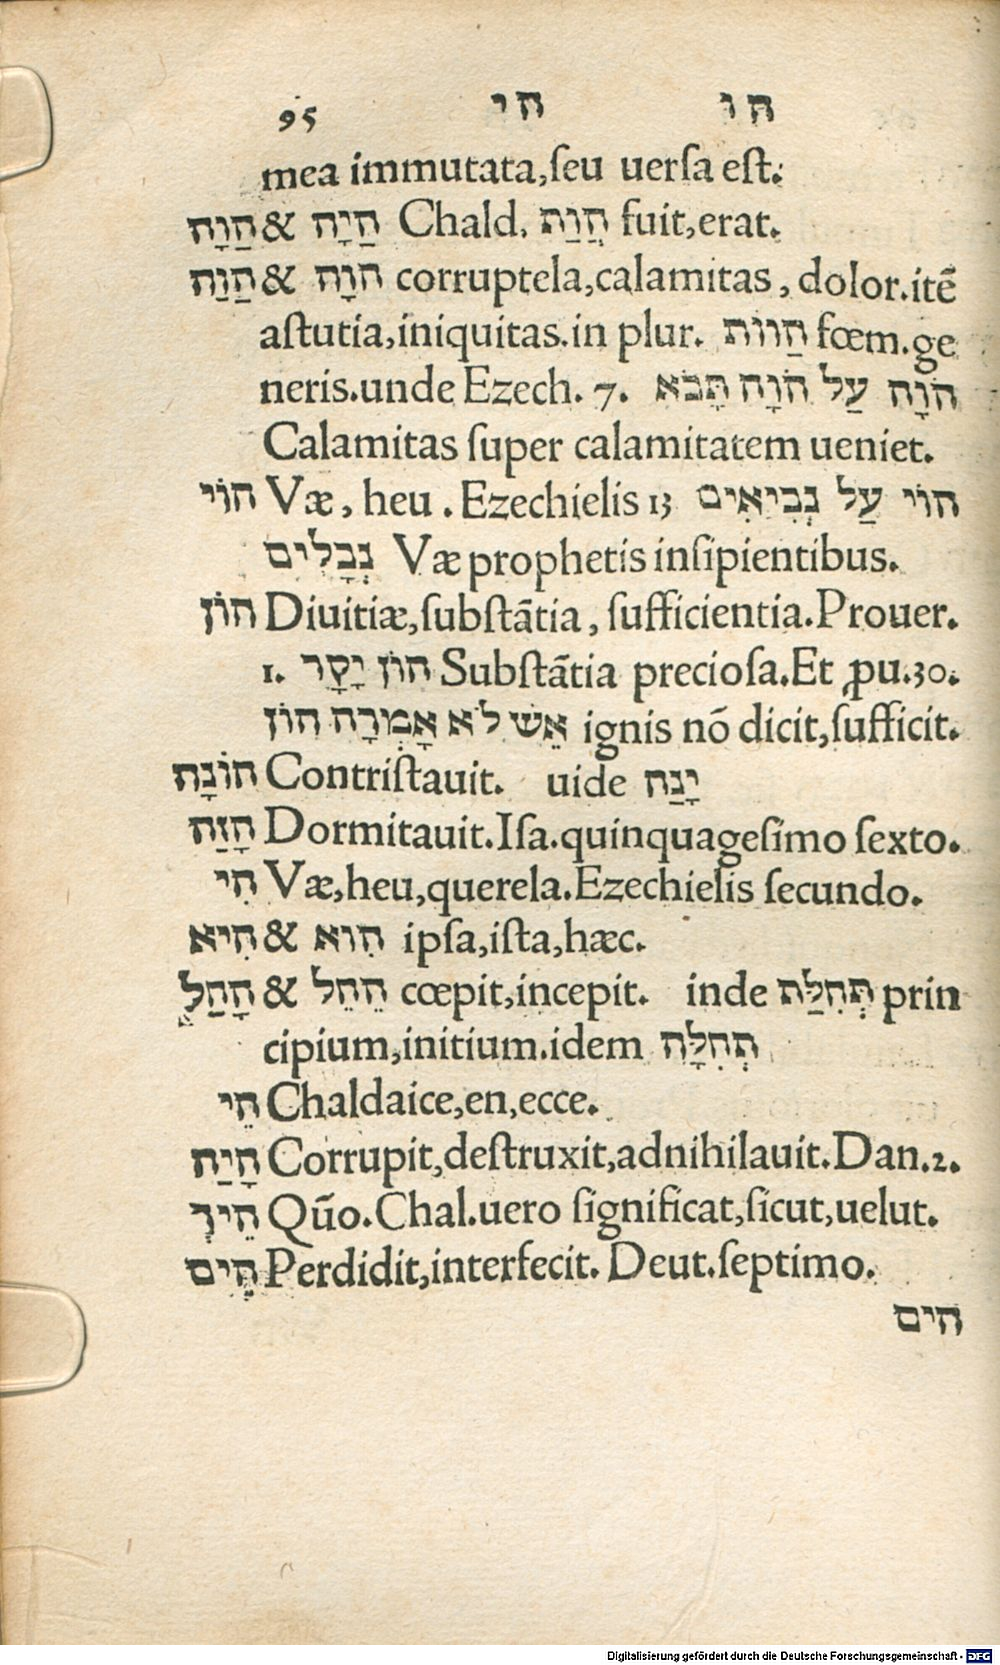 95 הי הו
mea immutata,ſeu uerſa eſt.
הָוָה & הָיָה Chald. הֲוַת fuit,erat.
הַוַּת & הֹוָה corruptela,calamitas, dolor.itē
aſtutia,iniquitas.in plur. הַוּוֹת fœm.ge
neris.unde Ezech. 7. הֹוָה עַל הֹוָה תָּבֹא
Calamitas ſuper calamitatem ueniet.
הוֹי Væ, heu . Ezechielis 13 הוֹי עַל נְבִיאִים
נְבָלִים Væ prophetis inſipientibus.
הוֹן Diuitiæ,ſubſtātia, ſufficientia.Prouer.
1. הוֹן יָקָר Subſtātia precioſa.Et ꝓu.30.
אֵשׁ לֹא אָמְרָה הוֹן ignis nō dicit,ſufficit.
הוֹנָה Contriſtauit. uide יָנַה
הָזַה Dormitauit.Iſa.quinquageſimo ſexto.
הִי Væ,heu,querela.Ezechielis ſecundo.
הִיא & הִוא ipſa,iſta,hæc.
הָחַל & הֵחֵל cœpit,incepit. inde תְּחִלַּת prin
cipium,initium.idem תְּחִלָּה
הֵי Chaldaice,en,ecce.
הָיַה Corrupit,deſtruxit,adnihilauit.Dan.2.
הֵיךְ Quō.Chal.uero ſignificat,ſicut,uelut.
הָיַם Perdidit,interfecit. Deut.ſeptimo.
הים
Digitalisierung gefördert durch die Deutsche Forschungsgemeinschaft - DFG